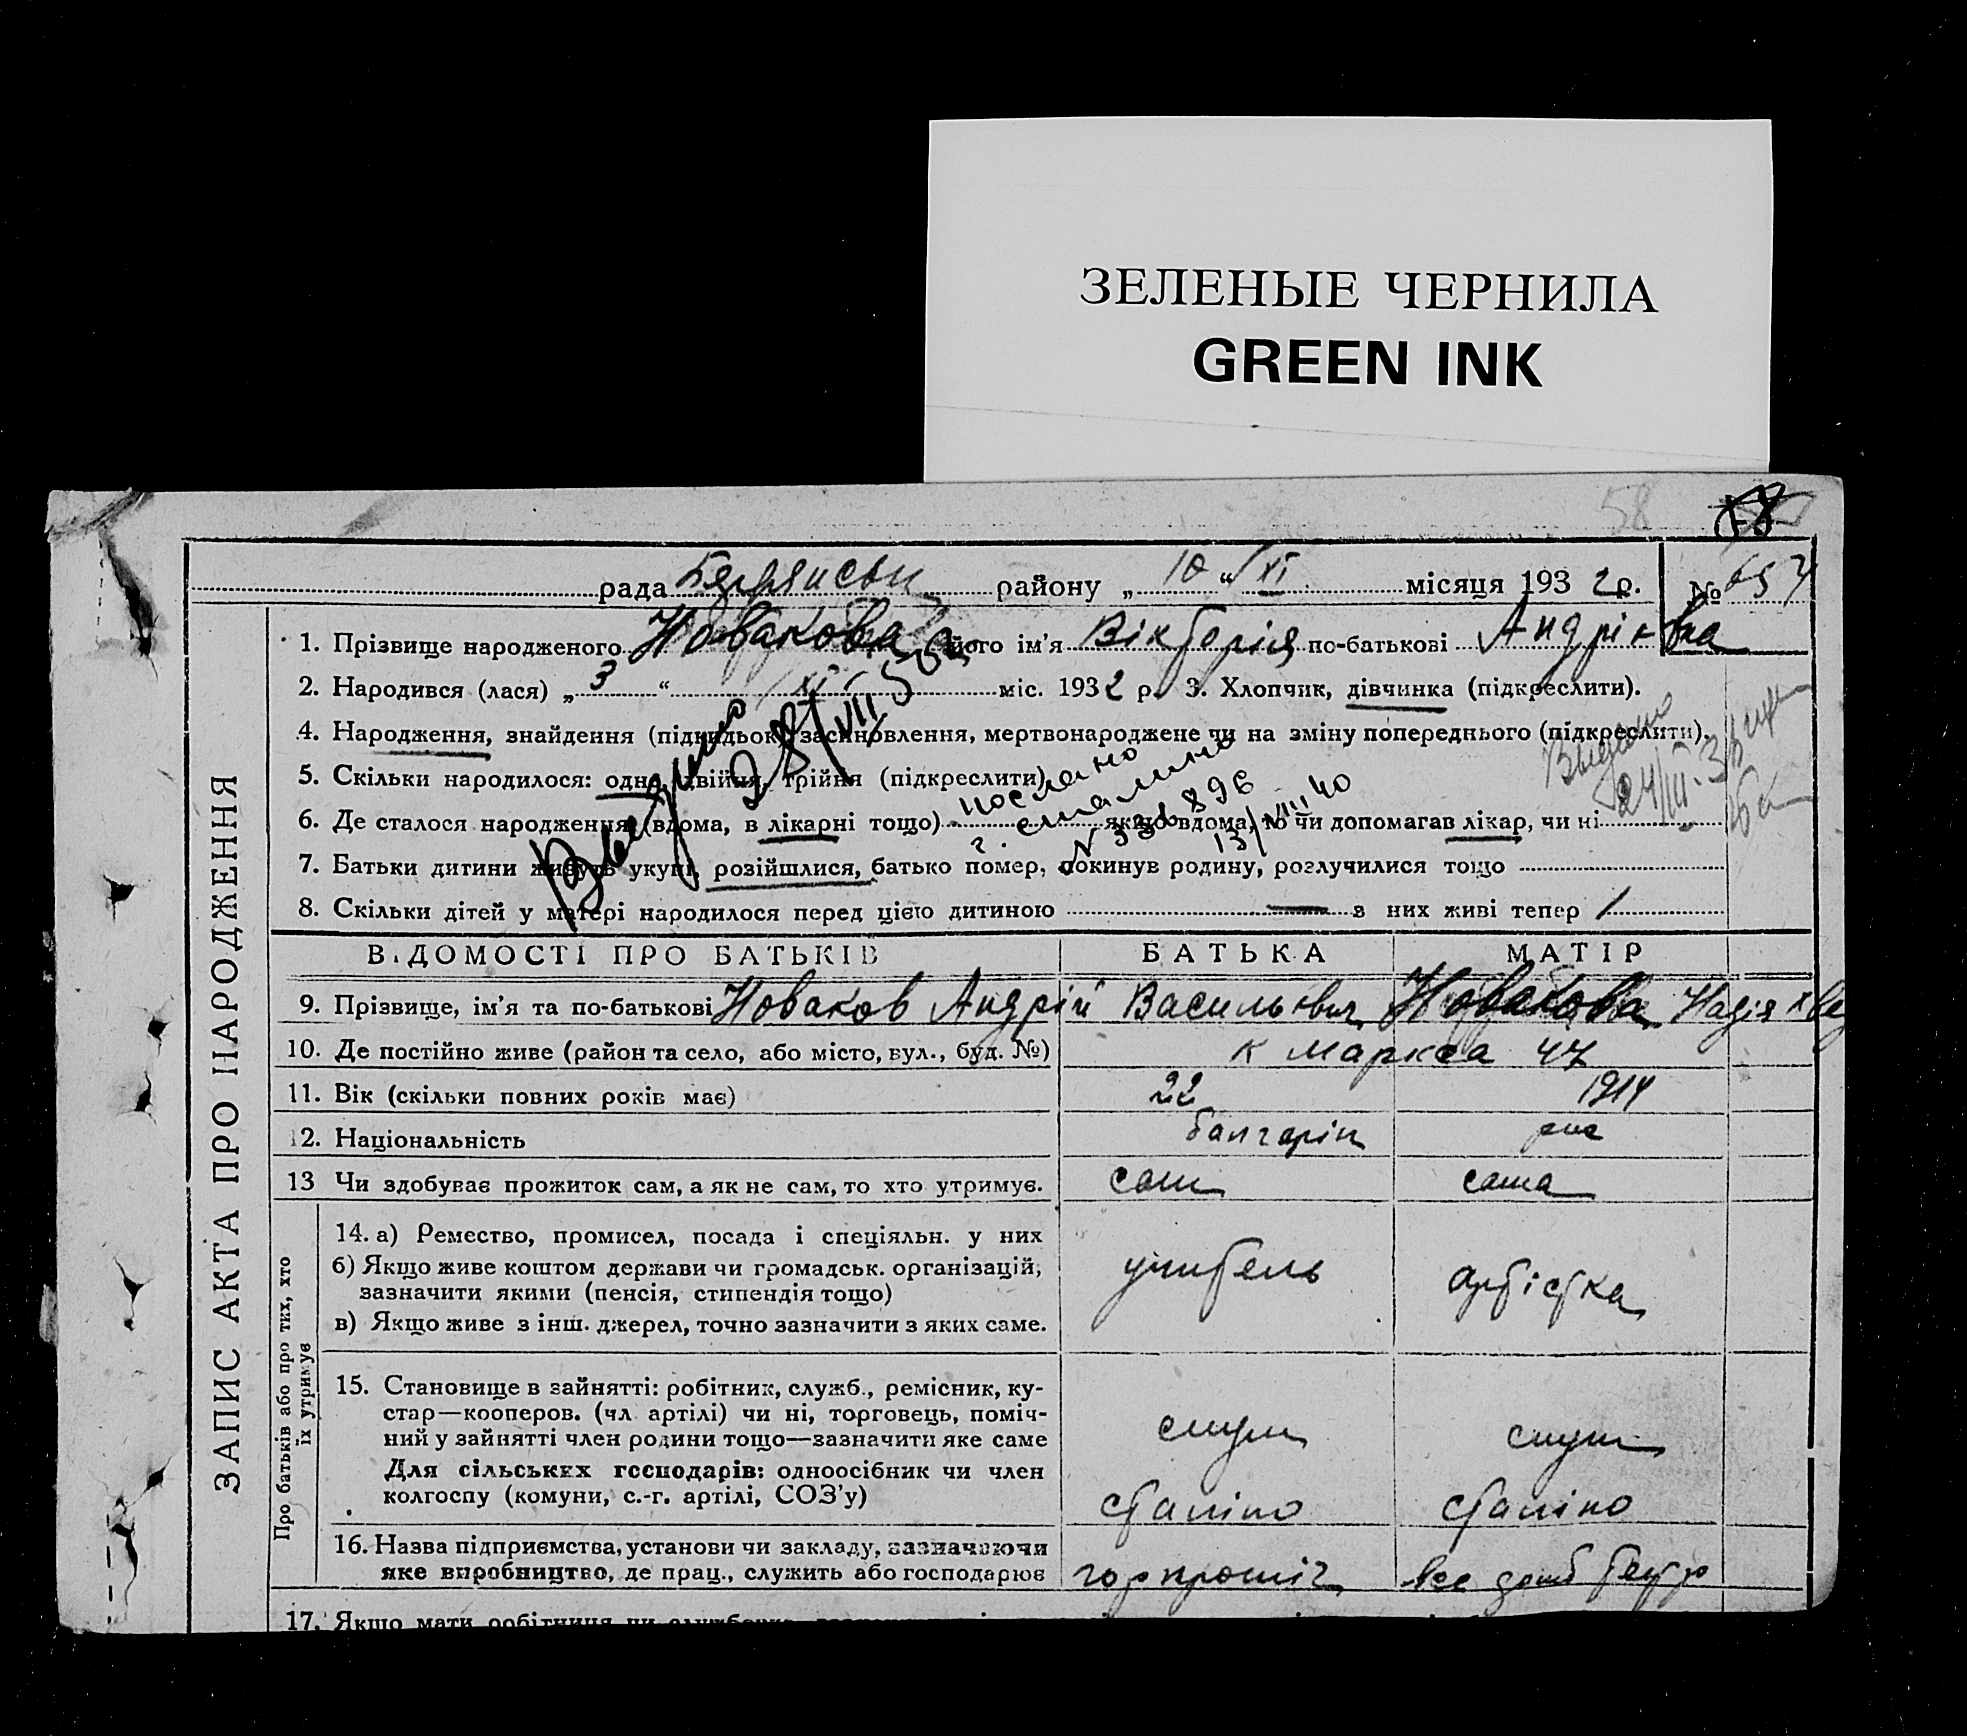 ЗЕЛЕНЫЕ ЧЕРНИЛА
GREEN INK
58
58
рада Бердянськ району „ 10 “ XI місяця 193 2 р. № 657
ЗАПИС АКТА ПРО НАРОДЖЕННЯ
1. Прізвище народженого Новакова його ім'я Вікторія по-батькові Андріївна
2. Народився (лася) „ 3 “ XI міс. 193 2 р. 3. Хлопчик, дівчинка (підкреслити).
4. Народження, знайдення (підкидьок) засиновлення, мертвонароджене чи на зміну попереднього (підкреслити).
5. Скільки народилося: одно, двійня, трійня (підкреслити)
6. Де сталося народження (вдома, в лікарні тощо) якщо вдома, то чи допомагав лікар, чи ні
7. Батьки дитини живуть укупі, розійшлися, батько помер, покинув родину, розлучилися тощо
8. Скільки дітей у матері народилося перед цією дитиною — з них живі тепер 1
Выдано
28/VII
послано
г. Сталино
N 338896
13/VIII 40
Выдано
24/III
ВІДОМОСТІ ПРО БАТЬКІВ БАТЬКА МАТІР
9. Прізвище, ім'я та по-батькові Новаков Андрій Васильович Новакова Надія
10. Де постійно живе (район та село, або місто, вул., буд. №) К Маркса 47
11. Вік (скільки повних років має) 22 1914
12. Національність болгарін рос
13 Чи здобуває прожиток сам, а як не сам, то хто утримує. сам сама
Про батьків або про тих, хто їх утримує
14. а) Ремество, промисел, посада і спеціяльн. у них
б) Якщо живе коштом держави чи громадськ. організацій, зазначити якими (пенсія, стипендія тощо)
в) Якщо живе з інш. джерел, точно зазначити з яких саме.
учитель артістка
15. Становище в зайнятті: робітник, служб., ремісник, ку-
стар—кооперов. (чл артілі) чи ні, торговець, поміч-
ний у зайнятті член родини тощо—зазначити яке саме
Для сільських господарів: одноосібник чи член
колгоспу (комуни, с.-г. артілі, СОЗ'у)
служ служ
Сталіно Сталіно
16. Назва підприємства, установи чи закладу, зазначаючи
яке виробництво, де прац., служить або господарює
17. Якщо мати робітниця чи службовка